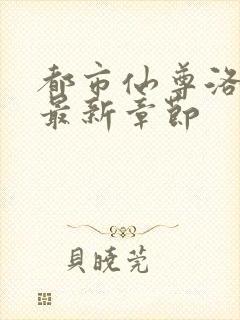 都市仙尊洛
最新章節
貝曉莞